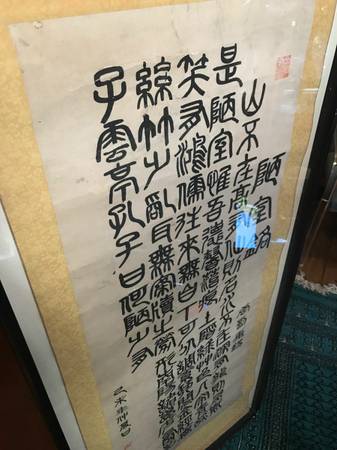 陋室銘
唐劉禹錫
山不在高有仙則名水不在深有龍則靈斯
是陋室惟吾德馨苔痕上階綠草色入簾青談
笑有鴻儒往來無白丁可以調素琴閱金經無
絲竹之亂耳無案牘之勞形南陽諸葛廬西蜀
子雲亭孔子曰何陋之有
乙未年仲夏日